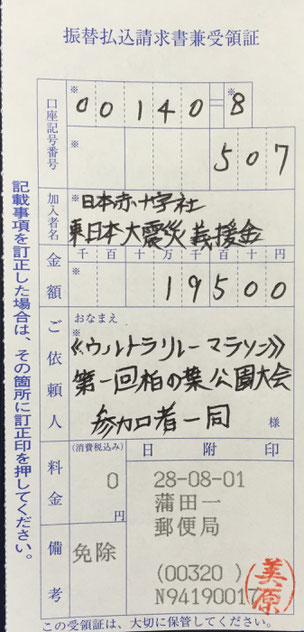 振替払込請求書兼受領証
口座記号番号
※
00140
※
8
507
加入者名
※
日本赤十字社
東日本大震災義援金
金額
千百十万千百十円
19500
ご依頼人
おなまえ
※
《ウルトラリレーマラソン》
第一回柏の葉公園大会
参加者一同
様
料金
(消費税込み)
0
円
日附印
28-08-01
蒲田一
郵便局
(00320 )
N94190017
美原
備考
免除
記載事項を訂正した場合は、その箇所に訂正印を押してください。
この受領証は、大切に保管してください。